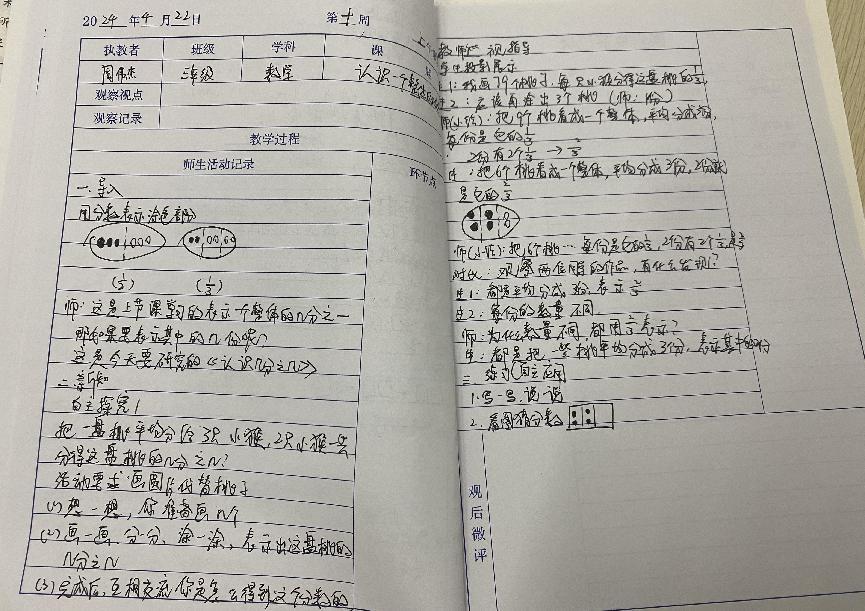 2024年4月22日 第十周
执教者 班级 学科 课
周伟杰 三年级 数学 认识一个整体的
观察视点
观察记录
教学过程
师生活动记录 环节点
一.导入
用分数表示涂色部分
(1/2) (1/3)
师:这是上节课学的表示一个整体的几分之一
那如果要表示其中的几份呢?
这是今天要研究的《认识几分之几》
二.新知
自主探究1
把一盘桃平均分给3只小猴,2只小猴一共
分得这盘桃的几分之几?
活动要求:画圆片代替桃子
(1)想一想,你准备画几个
(2)画一画,分一分,涂一涂,表示出这盘桃的
几分之几
(3)完成后,互相交流你是怎么得到这个分数的
教师巡视指导
学生投影展示
生1:我画了9个桃子,每只小猴分得这盘桃的1/3
生2:应该再涂出3个桃(师:份)
师(小结):把9个桃看成一个整体,平均分成3份,
每份是它的1/3
2份有2个1/3→2/3
生:把6个桃看成一个整体,平均分成3份,2份就
是它的2/3
师(小结):把6个桃…每份是它的1/3,2份有2个1/3,是2/3
讨论:观察两位同学的作品,有什么发现?
生1:都是平均分成3份,表示2/3
生2:每份的数量不同
师:为什么数量不同,都用2/3表示?
生:都是把一些桃平均分成3份,表示其中的2份
三.练习(自主应用)
1.写一写,说一说
2.看图猜分数
观后微评